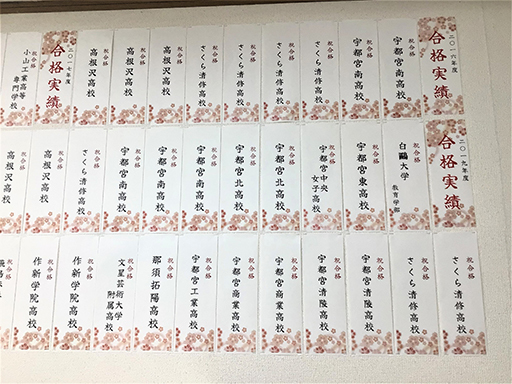 二〇一六年度
合格実績
祝合格
宇都宮南高校
祝合格
宇都宮南高校
祝合格
さくら清修高校
祝合格
さくら清修高校
祝合格
さくら清修高校
祝合格
さくら清修高校
祝合格
高根沢高校
祝合格
高根沢高校
祝合格
高根沢高校
二〇一七年度
合格実績
祝合格
小山工業高等
専門学校
二〇一九年度
合格実績
祝合格
白鷗大学
教育学部
祝合格
宇都宮東高校
祝合格
宇都宮中央
女子高校
祝合格
宇都宮北高校
祝合格
宇都宮北高校
祝合格
宇都宮南高校
祝合格
宇都宮南高校
祝合格
宇都宮南高校
祝合格
さくら清修高校
祝合格
高根沢高校
高根沢高校
祝合格
さくら清修高校
祝合格
さくら清修高校
祝合格
宇都宮清陵高校
祝合格
宇都宮清陵高校
祝合格
宇都宮商業高校
祝合格
宇都宮商業高校
祝合格
宇都宮工業高校
祝合格
那須拓陽高校
祝合格
文星芸術大学
附属高校
祝合格
作新学院高校
祝合格
作新学院高校